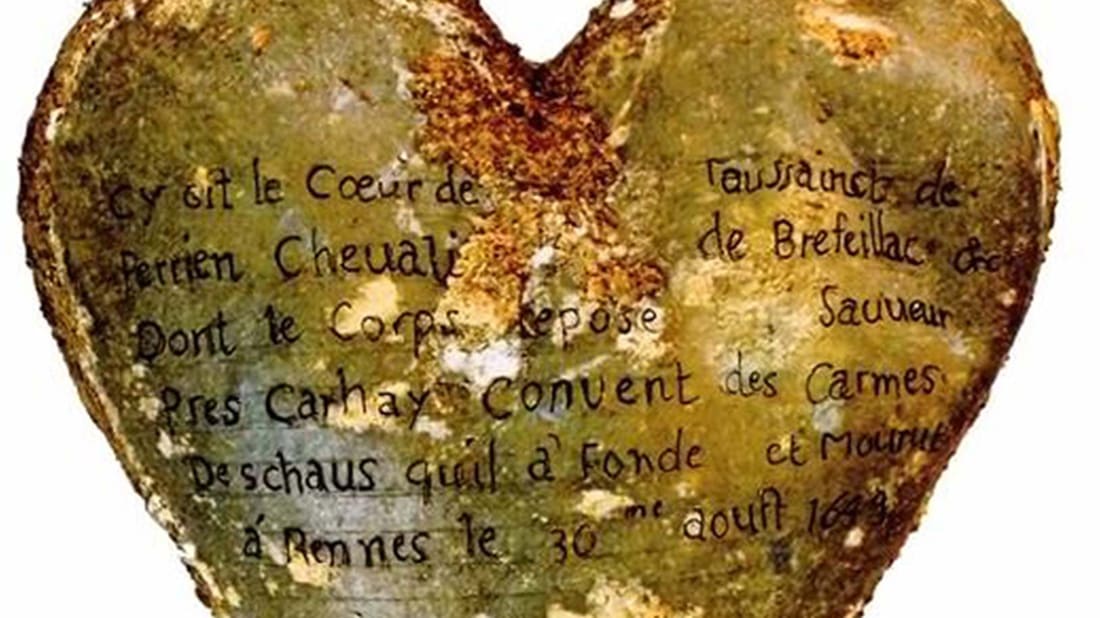 Cy Git le Cœur de Toussainct de
Perrien Cheuali de Brefeillac &c
Dont le Corps repose Sauueur
Pres Carhay Convent des Carmes
Deschaus quil à Fondé et Mourut
á Rennes le 30me aoust 1649